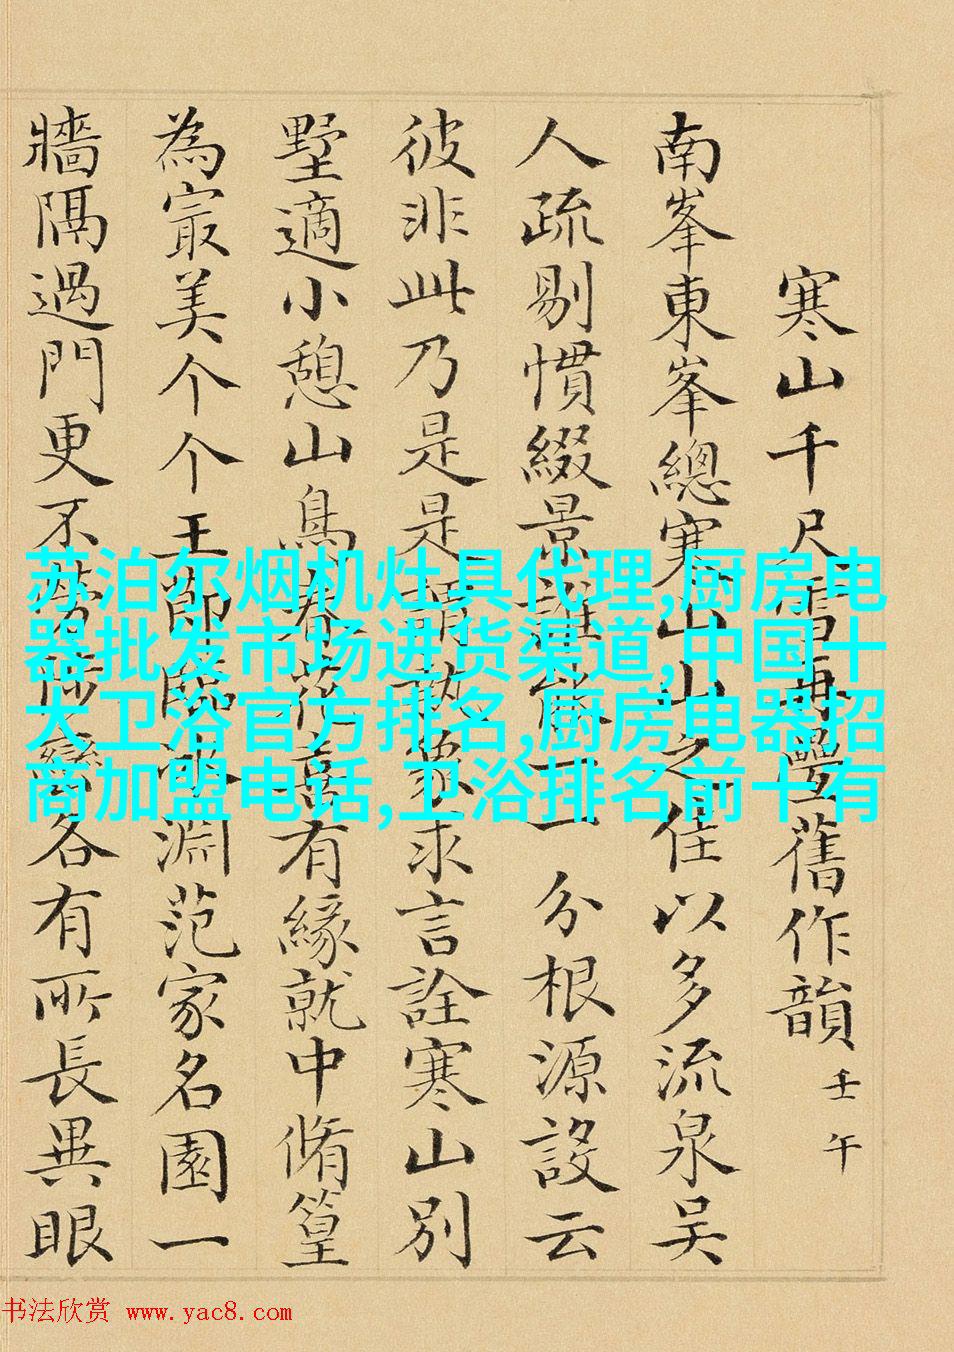 寒山千尺雪再疊舊作韻 壬午
南峯東峯總寒山山之佳以多流泉吴
人疏剔慣綴景誰能一一分根源設云
彼非此乃是是謂執象求言詮寒山別
墅適小憩山鳥春花喜有緣就中脩篁
為冣美个个王節臨冰淵范家名園一
牆隔過門更不勞停鑾各有所長異眼
苏泊尔烟机灶具代理,厨房电
器批发市场进货渠道,中国十
大卫浴官方排名,厨房电器招
商加盟电话,卫浴排名前十有
书法欣赏 www.yac8.com